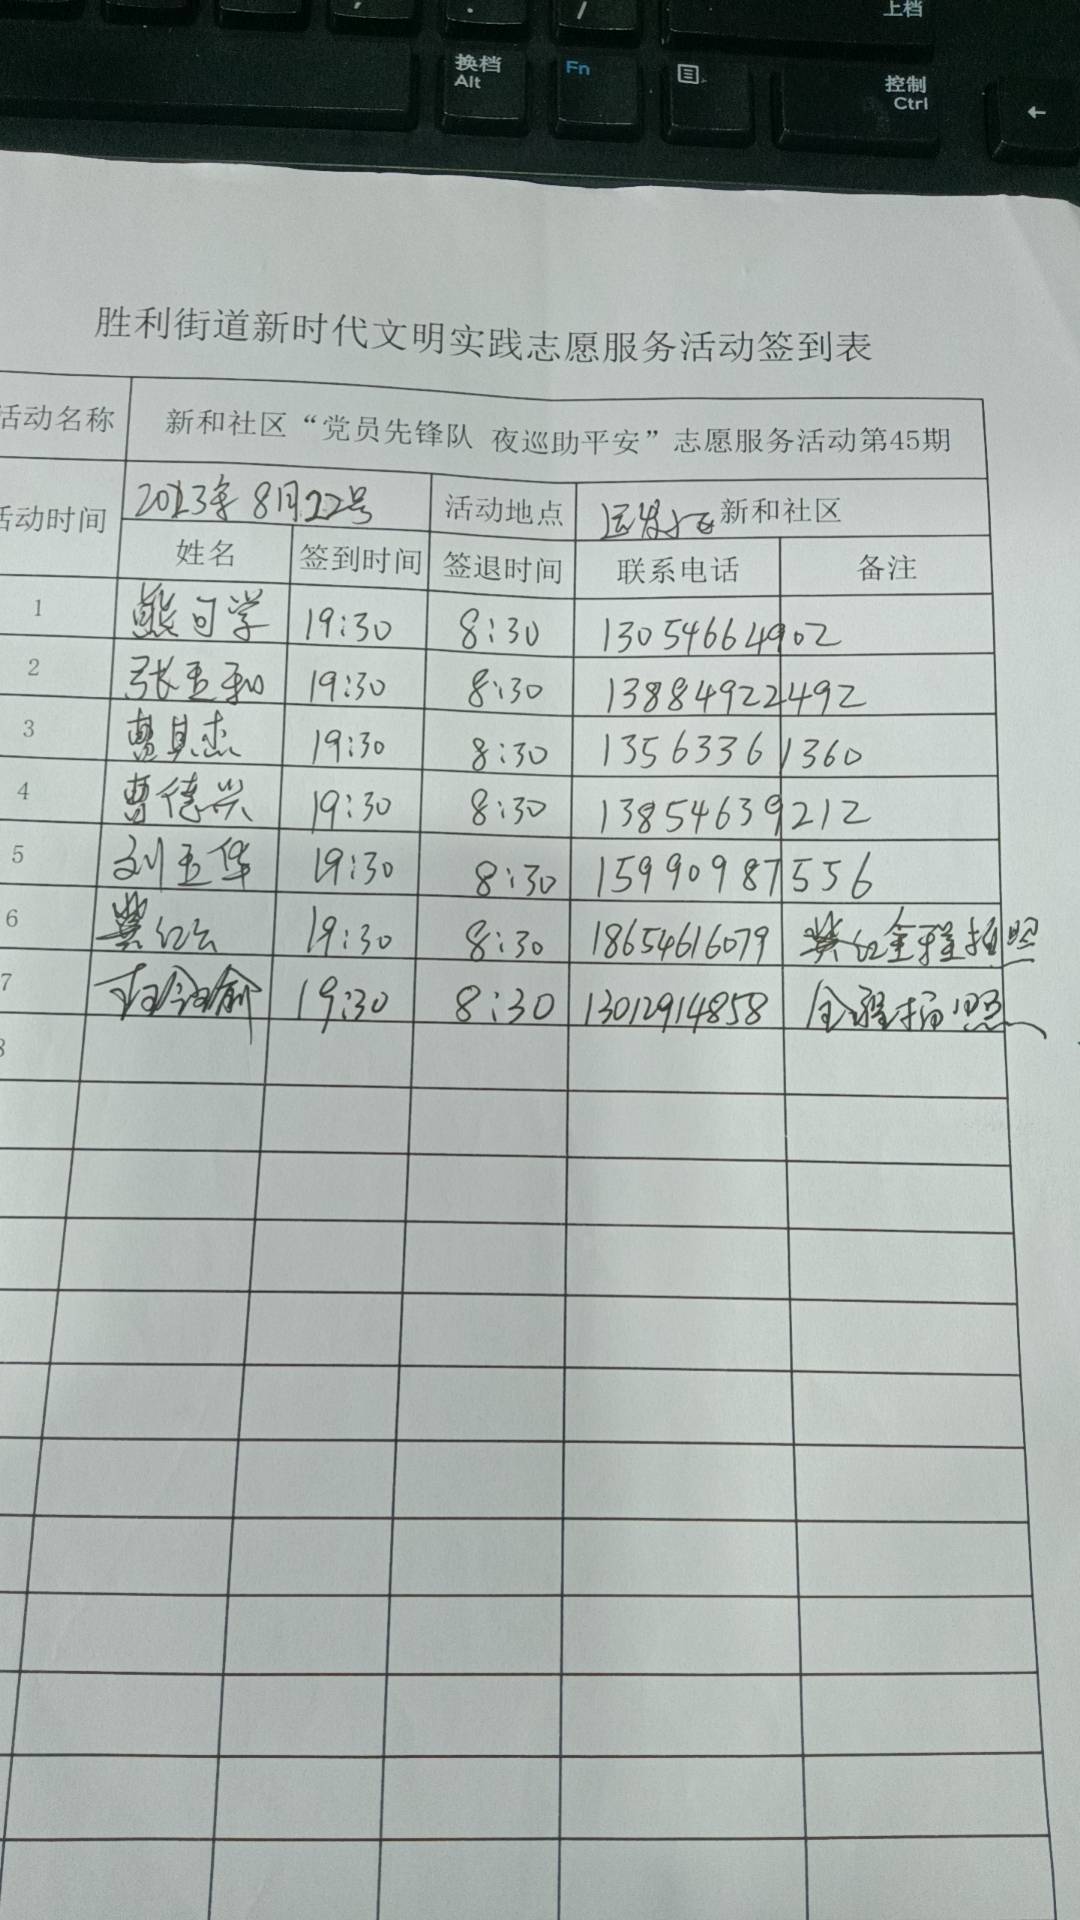 上档
换档
Alt
Fn
控制
Ctrl
←
胜利街道新时代文明实践志愿服务活动签到表
活动名称 新和社区“党员先锋队 夜巡助平安”志愿服务活动第45期
活动时间 2023年8月22号 活动地点 新和社区
姓名 签到时间 签退时间 联系电话 备注
1 熊可学 19:30 8:30 13054664902
2 张玉和 19:30 8:30 13884922492
3 曹其杰 19:30 8:30 13563361360
4 曹德兴 19:30 8:30 13854639212
5 刘玉华 19:30 8:30 15990987556
6 红云 19:30 8:30 18654616079 全程拍照
7 19:30 8:30 13012914858 全程拍照
8